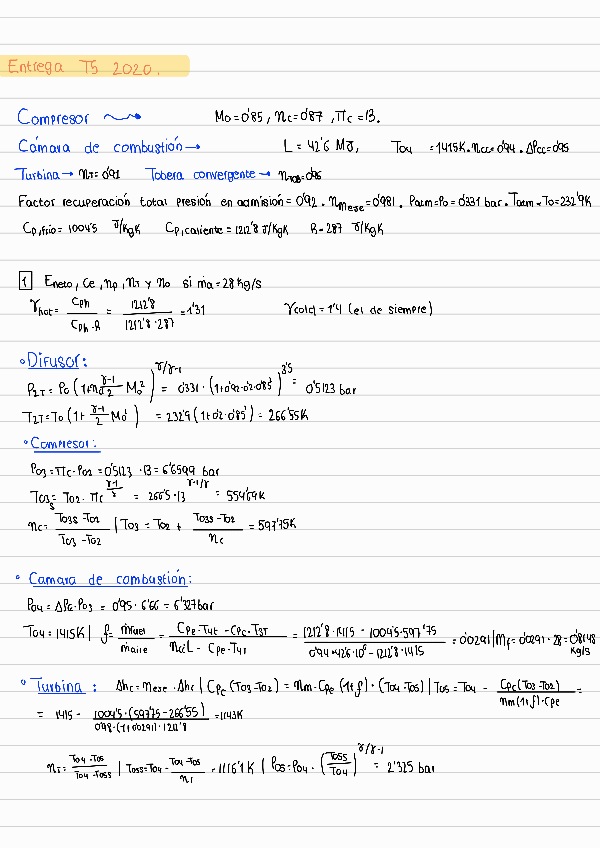 Entrega T5 2020.
Compresor ⟿ M0=0'85, ηc=0'87, πc=13.
Cámara de combustión → L=42'6 MJ, T04 =1415K. ηcc=0'94. ΔPcc=0'95
Turbina → ηT=0'91 Tobera convergente → ηTOB=0'95
Factor recuperación total presión en admisión=0'92. ηmese=0'981. Patm=P0=0'331 bar. Tatm=T0=232'9K
Cp,frío=1004'5 J/kgK Cp,caliente=1212'8 J/kgK R=287 J/kgK
1 Eneto, Ce, ηp, ηT y η0 si ṁa=28kg/s
γhot= Cph / Cph-R = 1212'8 / 1212'8-287 =1'31 γcold=1'4 (el de siempre)
• Difusor:
P2T=P0 (1+ηd γ-1/2 M0²)^γ/γ-1 = 0'331·(1+0'92·0'2·0'85²)^3'5 = 0'5123 bar
T2T=T0(1+ γ-1/2 M0²) =232'9(1+0'2·0'85²)=266'55K
• Compresor:
P03=πc·P02=0'5123·13=6'6599 bar
T03s=T02·πc^γ-1/γ = 266'5·13^γ-1/γ = 554'69K
ηc= T03s-T02 / T03-T02 | T03=T02+ T03s-T02 / ηc =597'75K
• Camara de combustión:
P04=ΔPcc·P03=0'95·6'66=6'327bar
T04=1415K | f= ṁfuel / ṁaire = Cpe·T4t-Cpc·T3T / ηcc·L-Cpe·T4T = 1212'8·1415-1004'5·597'75 / 0'94·42'6·10⁶-1212'8·1415 =0'0291|Mf=0'0291·28=0'8148 kg/s
• Turbina: Δhc=ηese·Δhc | Cpc(T03-T02)=ηm·Cpe(1+f)·(T04-T05)|T05=T04- Cpc(T03-T02) / ηm(1+f)·Cpe =
= 1415- 1004'5·(597'75-266'55) / 0'98·(1+0'0291)·1212'8 =1143K
ηT= T04-T05 / T04-T05s | T05s=T04- T04-T05 / ηT =1116'1K | P05=P04·(T05s / T04)^γ/γ-1 = 2'325 bar